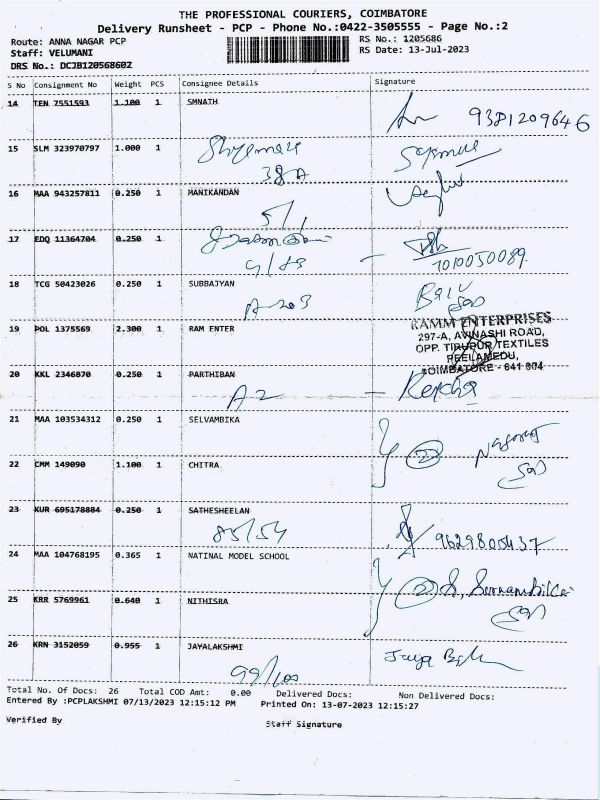 THE PROFESSIONAL COURIERS, COIMBATORE
Delivery Runsheet - PCP - Phone No.:0422-3505555 - Page No.:2
Route: ANNA NAGAR PCP RS No.: 1205686
Staff: VELUMANI RS Date: 13-Jul-2023
DRS No.: DCJB120568602
S No Consignment No Weight PCS Consignee Details Signature
14 TEN 7551593 1.100 1 SMNATH
9381209646
15 SLM 323970797 1.000 1
38A
16 MAA 943257811 0.250 1 MANIKANDAN
5/1
17 EDQ 11364704 0.250 1
9/83 1010050089
18 TCG 50423026 0.250 1 SUBBAJYAN
A-203
19 POL 1375569 2.300 1 RAM ENTER
RAMM ENTERPRISES
297-A, AVINASHI ROAD,
OPP. TIRUPUR TEXTILES
PEELAMEDU,
COIMBATORE - 641 004
20 KKL 2346870 0.250 1 PARTHIBAN
A2
21 MAA 103534312 0.250 1 SELVAMBIKA
2
22 CMM 149090 1.100 1 CHITRA
23 KUR 695178884 0.250 1 SATHESHEELAN
83/54 9629800437
24 MAA 104768195 0.365 1 NATINAL MODEL SCHOOL
2
25 KRR 5769961 0.640 1 NITHISRA
26 KRN 3152059 0.955 1 JAYALAKSHMI
99/100 Jaya
Total No. Of Docs: 26 Total COD Amt: 0.00 Delivered Docs: Non Delivered Docs:
Entered By :PCPLAKSHMI 07/13/2023 12:15:12 PM Printed On: 13-07-2023 12:15:27
Verified By Staff Signature